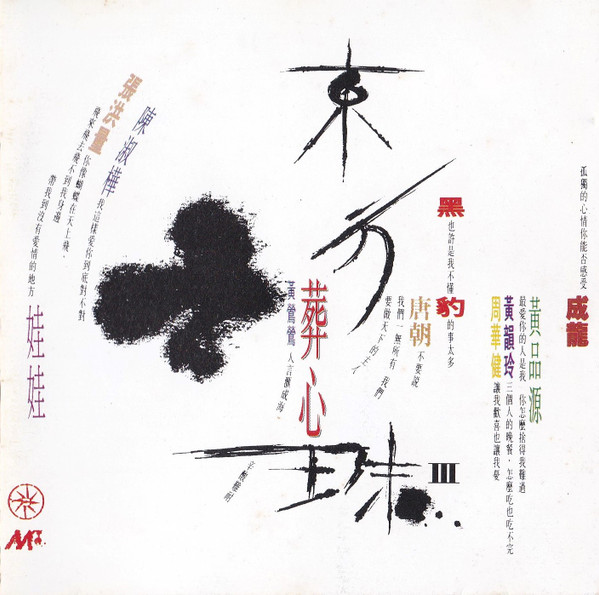 東方珠 III
孤獨的心情你能否感受
成龍
黃品源
最愛你的人是我 你怎麼捨得我難過
黃韻玲 三個人的晚餐・怎麼吃也吃不完
周華健 讓我歡喜也讓我愛
黑 也許是我不懂 豹 的事太多
唐朝 不要說
我們一無所有 我們
要做天下的主人
葬心
黃鶯鶯 人言 成 海，
辛酸難
陳淑樺 我這樣愛你到底對不對
張洪量 你像蝴蝶在天上飛，
飛來飛去飛不到我身邊
帶我到沒有愛情的地方 娃娃